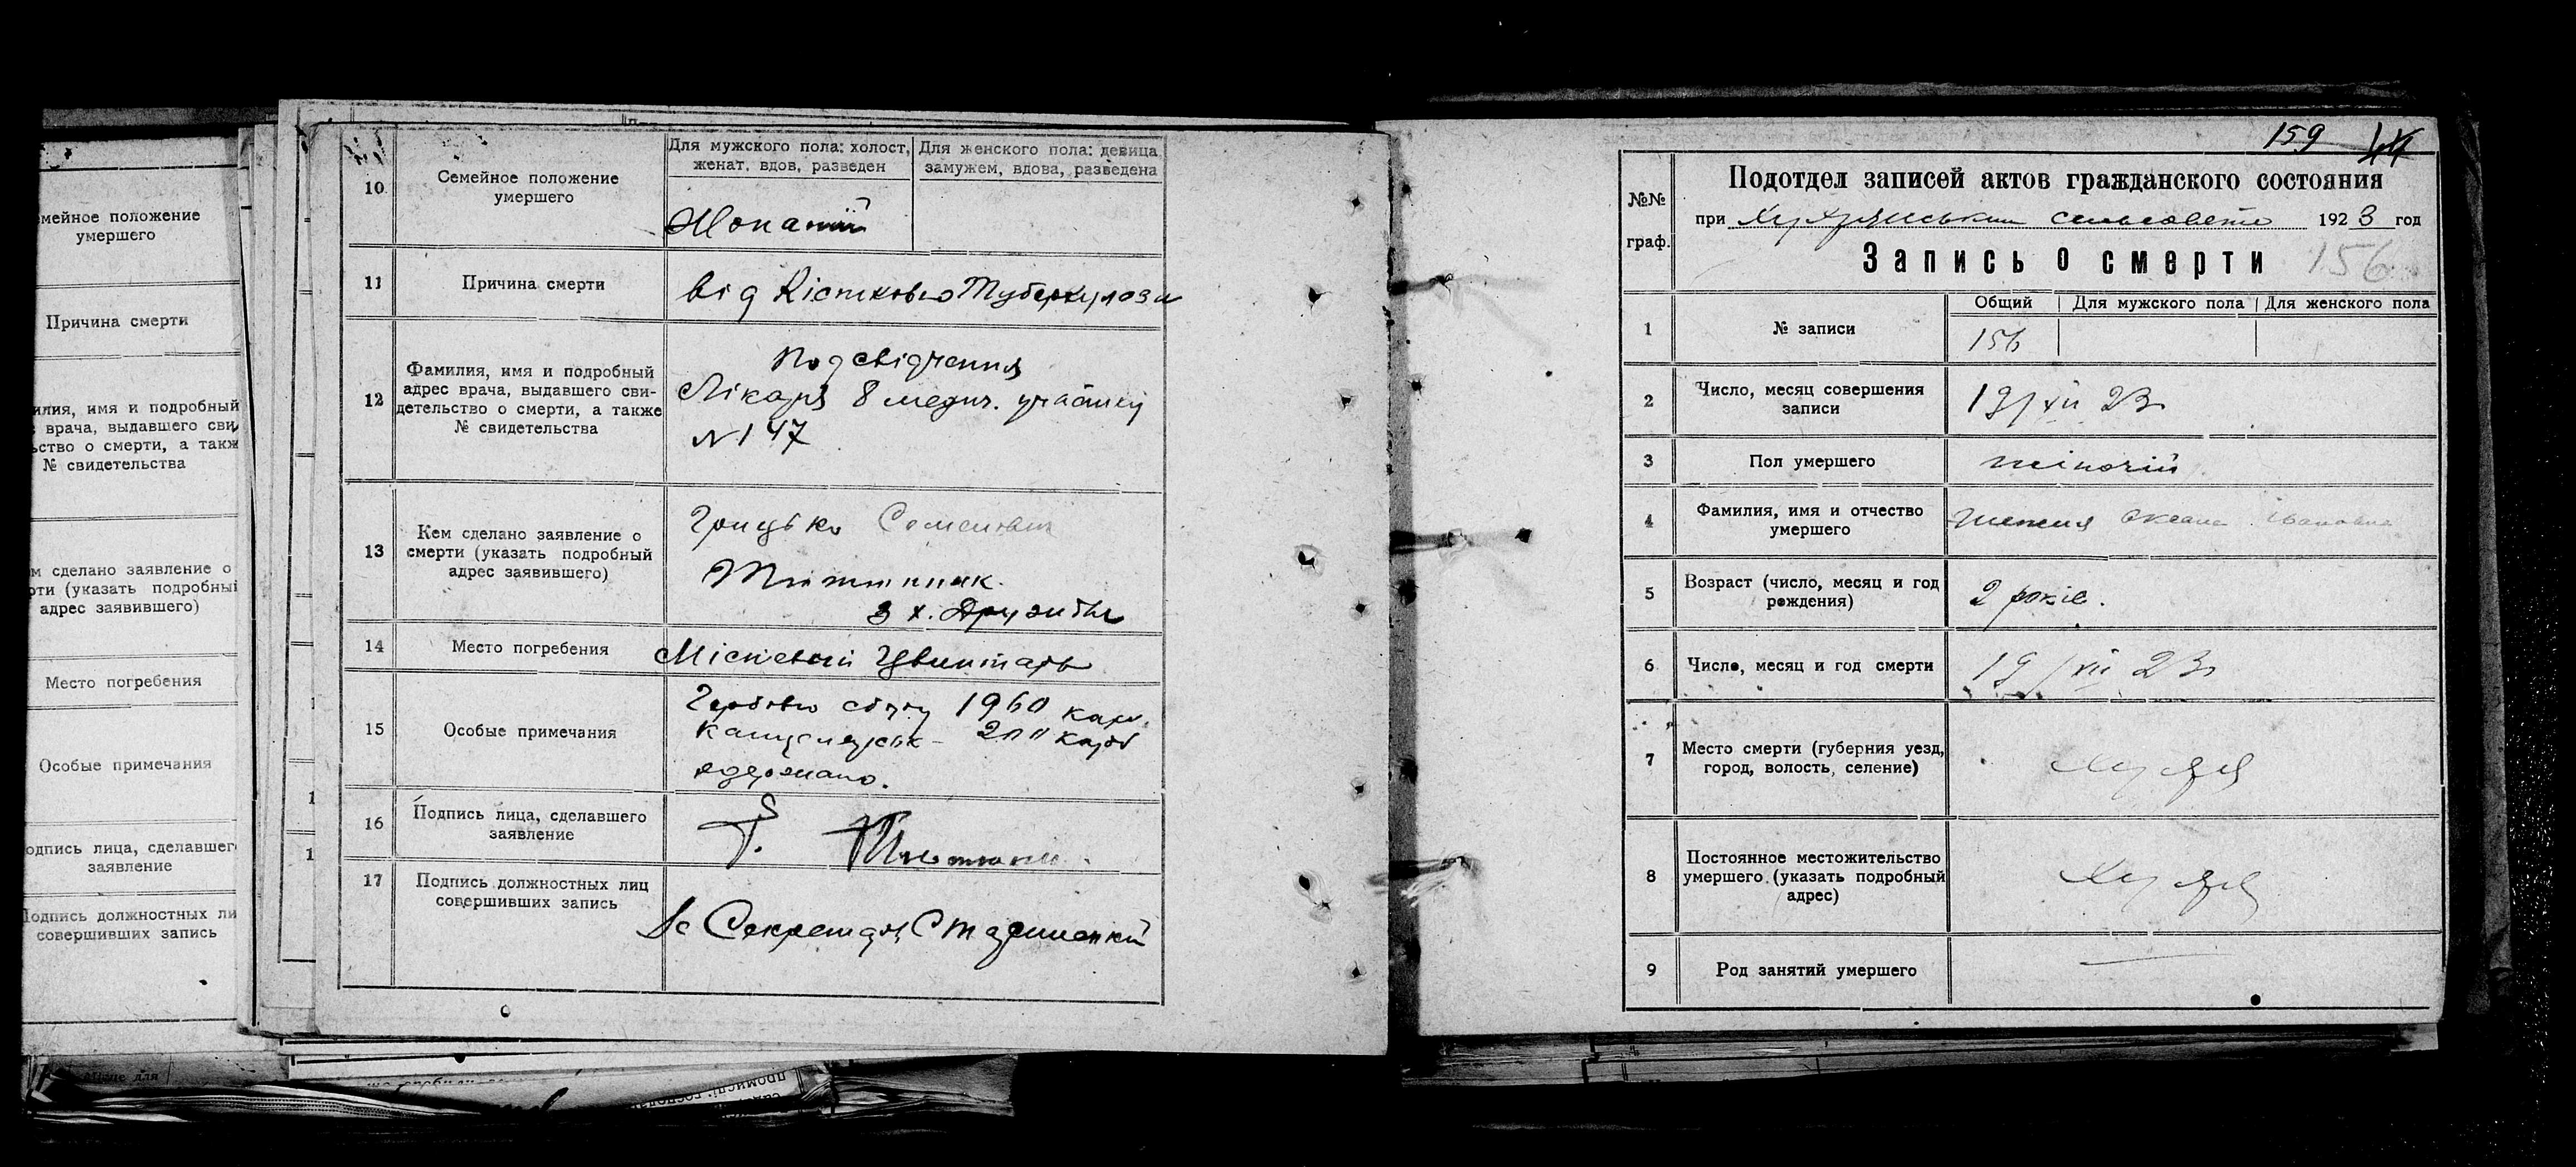 мейное положение
умершего
Причина смерти
илия, имя и подробный
врача, выдавшего сви
ьство о смерти, а такж
№ свидетельства
м сделано заявление о
рти (указать подробный
адрес заявившего)
Место погребения
Особые примечания
одпись лица, сделавшег
заявление
Подпись должностных ли
совершивших запись
10
Семейное положение
умершего
Для мужского пола: холост,
женат, вдов, разведен
Для женского пола: девица
замужем, вдова, разведена
Жонатий
11
Причина смерти
від Кісткового Туберкулоза
12
Фамилия, имя и подробный
адрес врача, выдавшего сви-
детельство о смерти, а также
№ свидетельства
Лікаря 8 медич.
№ 147
13
Кем сделано заявление о
смерти (указать подробный
адрес заявившего)
Грицько Семенович
з х.
14
Место погребения
Місцевий Цвинтарь
15
Особые примечания
Гербово сбору 1960 карб.
карб
одержано.
16
Подпись лица, сделавшего
заявление
17
Подпись должностных лиц
совершивших запись
Секретарь
159
№№
граф.
Подотдел записей актов гражданского состояния
при 1923 год
Запись о смерти 156
1
№ записи
Общий
Для мужского пола
Для женского пола
156
2
Число, месяц совершения
записи
19/XII 23
3
Пол умершего
жіночій
4
Фамилия, имя и отчество
умершего
Оксана Івановна
5
Возраст (число, месяц и год
рождения)
2 років.
6
Число, месяц и год смерти
19/XII 23
7
Место смерти (губерния уезд,
город, волость, селение)
8
Постоянное местожительство
умершего (указать подробный
адрес)
9
Род занятий умершего